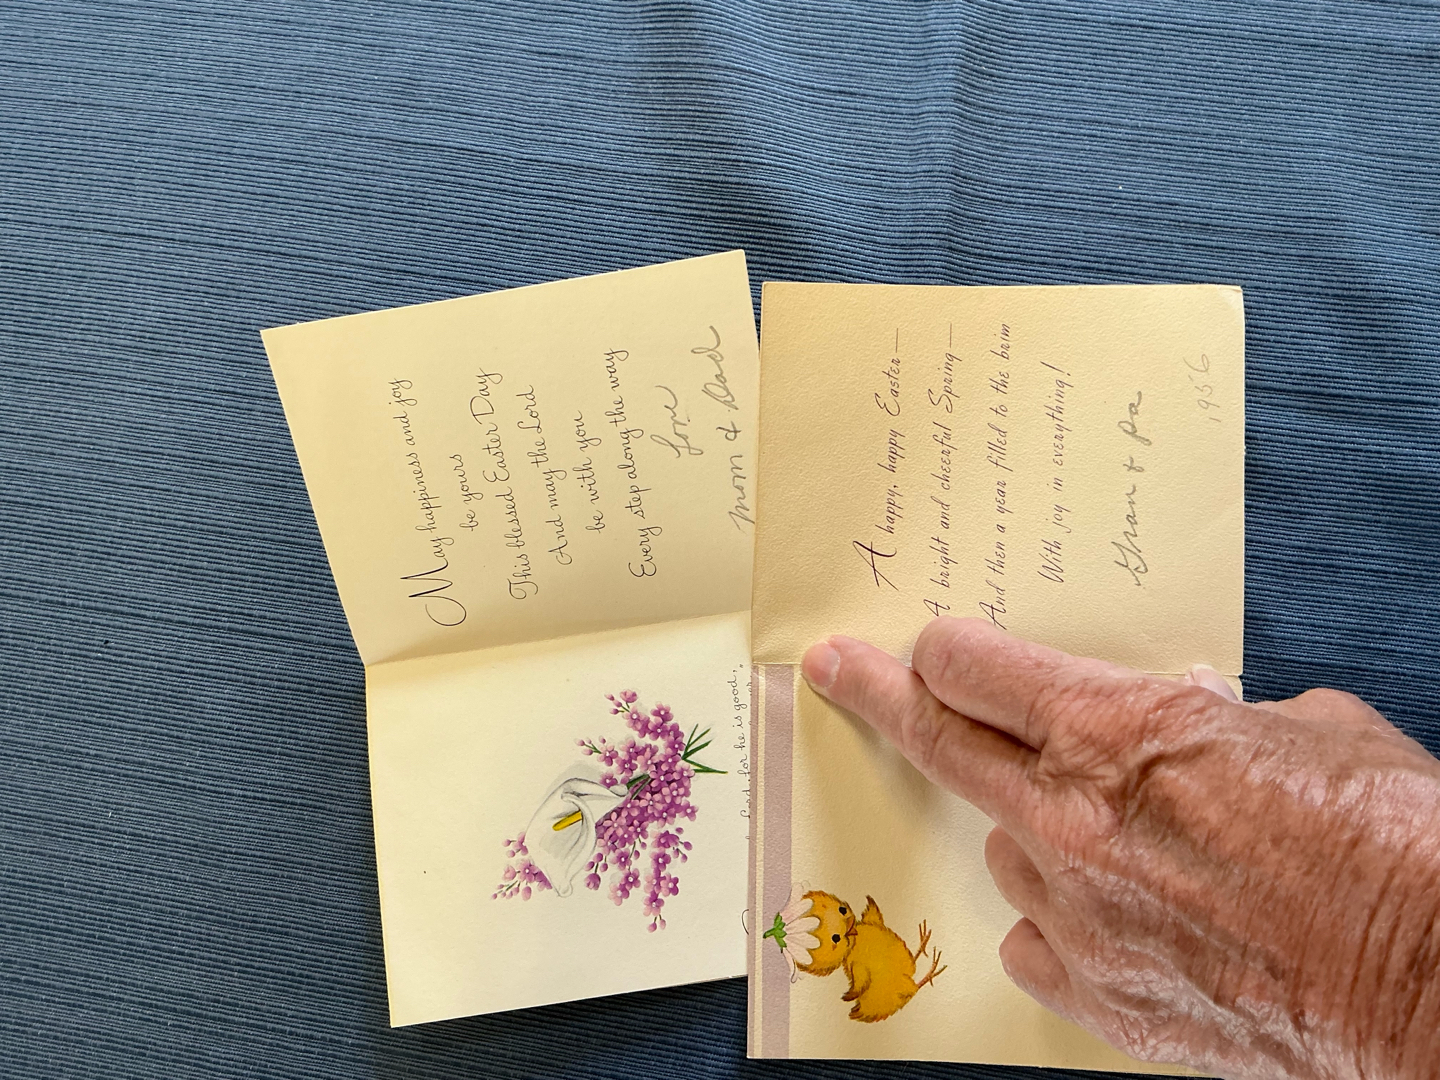 May happiness and joy
be yours
This blessed Easter Day
And may the Lord
be with you
Every step along the way
Love
Mom & Dad
Lord, for he is good,
A happy, happy Easter—
A bright and cheerful Spring—
And then a year filled to the brim
With joy in everything!
Gran & Pa
1956